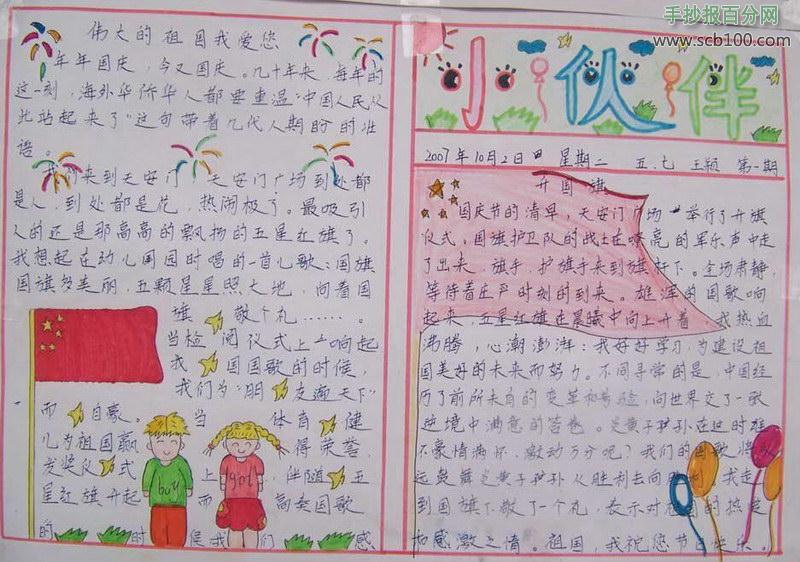 手抄报百分网
www.scb100.com
伟大的祖国我爱您
年年国庆，今又国庆。几十年来，每年的
这一刻，海外华侨华人都要重温“中国人民从
此站起来了”这句带着几代人期盼时壮
语。
我们来到天安门，天安门广场到处都
是人，到处都是花，热闹极了。最吸引
人的还是那高高的飘扬的五星红旗了。
我想起在幼儿园时唱的一首儿歌：国旗
国旗多美丽，五颗星星照大地，向着国
旗 敬个礼……。
当检阅仪式上响起
我国国歌的时候，
我们为“朋友遍天下”
而自豪。当体育健
儿为祖国赢得荣誉，
发奖仪式上，伴随五
星红旗升起而高奎国歌
的时候我们感
小伙伴
2007年10月2日 星期二 五.七 王颖 第一期
升国旗
国庆节的清早，天安门广场举行了升旗
仪式。国旗护卫队的战士在嘹亮的军乐声中走
了出来，旗手，护旗手来到旗杆下。全场肃静，
等待着庄严时刻的到来。雄浑的国歌响
起来，五星红旗在晨曦中向上升着，我热血
沸腾，心潮澎湃：我好好学习，为建设祖
国美好的未来而努力。不同寻常的是，中国经
历了前所未有的变革和考验，向世界交了一张
逆境中满意的答卷。炎黄子孙在这时难
不豪情满怀，激动万分呢？我们的国歌将永
远鼓舞炎黄子孙从胜利去向胜利，我走
到国旗下敬了一个礼，表示对祖国的热爱
和感激之情。祖国，我祝您节日快乐。
boy
girl